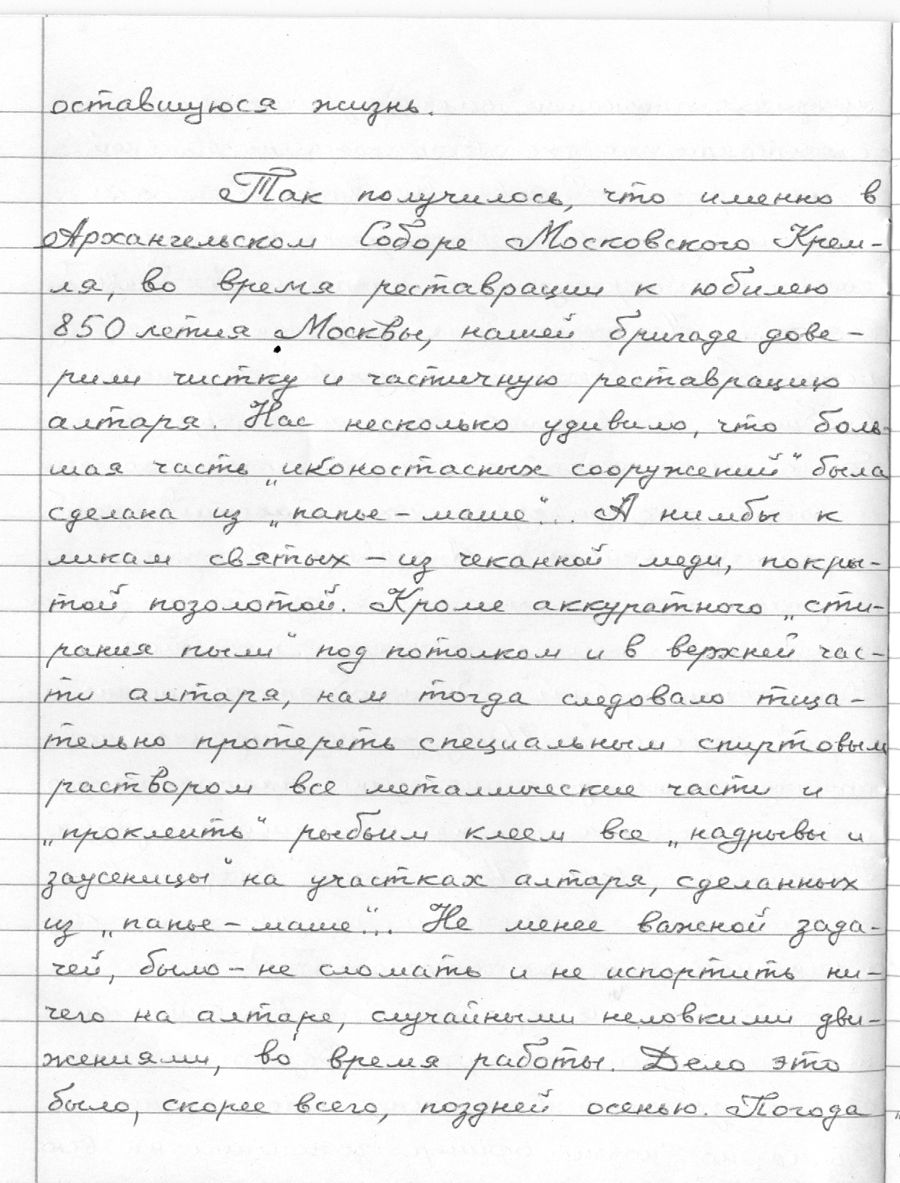 оставшуюся жизнь.
Так получилось, что именно в
Архангельском Соборе Московского Крем-
ля, во время реставрации к юбилею
850 летия Москвы, нашей бригаде дове-
рили чистку и частичную реставрацию
алтаря. Нас несколько удивило, что боль-
шая часть „иконостасных сооружений“ была
сделана из „папье-маше“... А нимбы к
ликам святых – из чеканной меди, покры-
той позолотой. Кроме аккуратного „сти-
рания пыли“ под потолком и в верхней час-
ти алтаря, нам тогда следовало тща-
тельно протереть специальным спиртовым
раствором все металлические части и
„проклеить“ рыбьим клеем все „надрывы и
заусеницы“ на участках алтаря, сделанных
из „папье-маше“... Не менее важной зада-
чей, было – не сломать и не испортить ни-
чего на алтаре, случайными неловкими дви-
жениями, во время работы. Дело это
было, скорее всего, поздней осенью. Погода